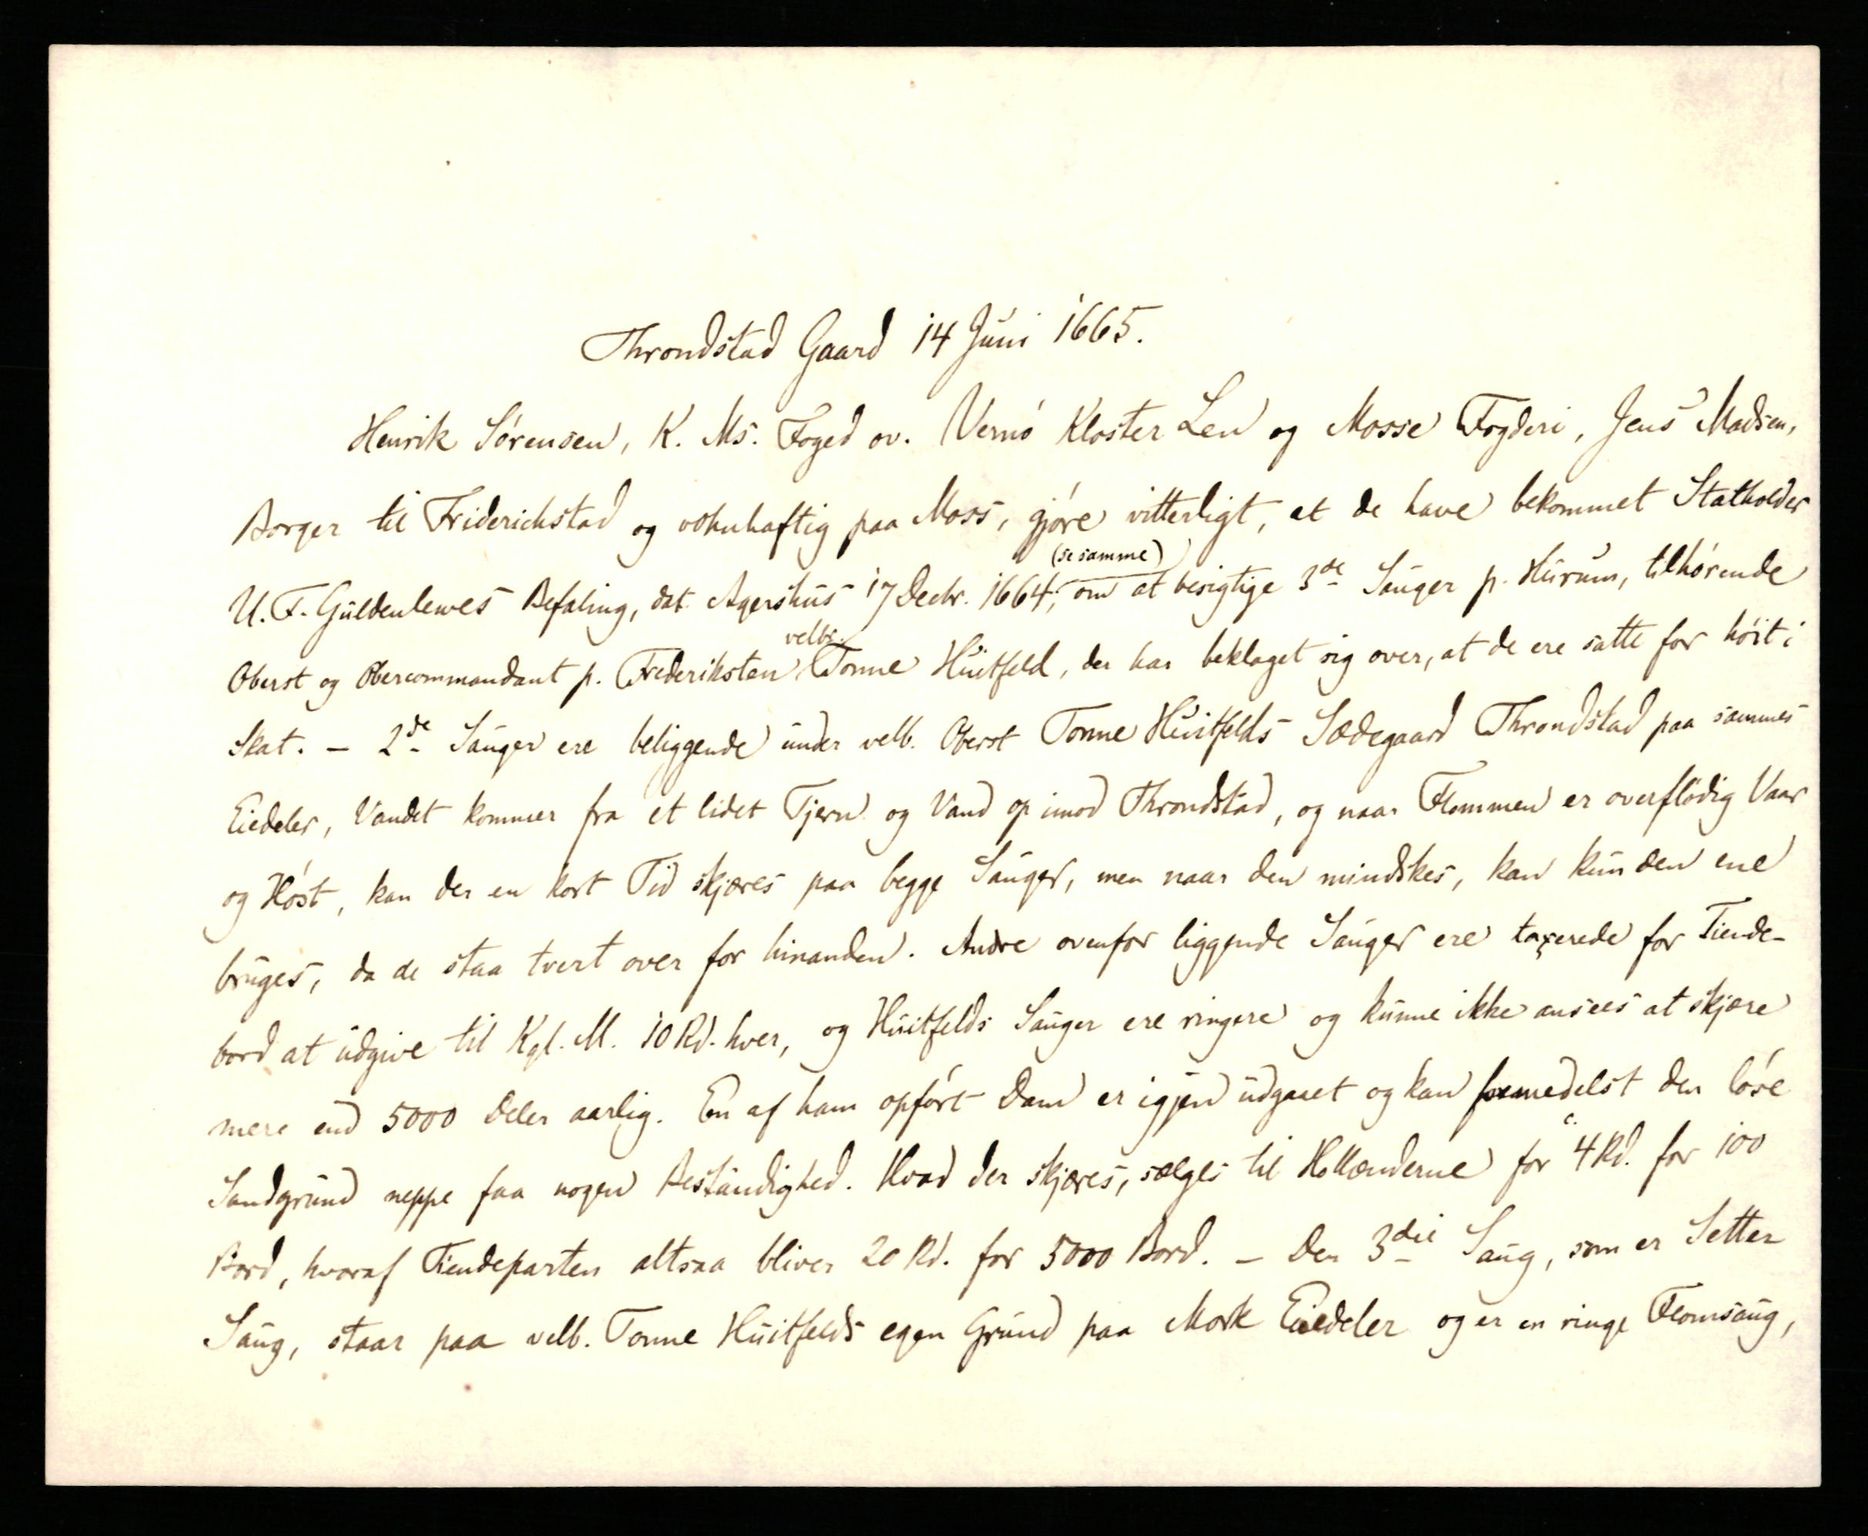 Throndstad Gaard 14 Juni 1665.
Henrik Sørensen, K. Ms. Foged ov. Vernø Kloster Len og Mosse Fogderi, Jens Madsen,
Borger til Friderichstad og vohnhaftig paa Moss, gjøre vitterligt, at de have bekommet Statholder
(se samme)
U. F. Güldenlewes Befaling, dat. Agershus 17 Decbr. 1664, om at besigtige 3de Sauger p. Hurum, tilhørende
velbr.
Oberst og Obercommandant p. Frederiksten Tonne Huitfeld, der har beklaget sig over, at de ere satte for høit i
Skat. – 2de Sauger ere beliggende under velb. Oberst Tonne Huitfelds Sædegaard Throndstad paa sammes
Eiedeler, Vandet kommer fra et lidet Tjern og Vand op imod Throndstad, og naar Flommen er overflødig Vaar
og Høst, kan der en kort Tid skjæres paa begge Sauger, men naar den mindskes, kan kun den ene
bruges, da de staa tvert over for hinanden. Andre ovenfor liggende Sauger ere taxerede for Tiende-
bord at udgive til Kgl. M. 10 Rd. hver, og Huitfelds Sauger ere ringere og kunne ikke ansees at skjære
mere end 5000 Deler aarlig. En af ham opført Dam er igjen udgaaet og kan formedelst den løse
Sandgrund neppe faa nogen Bestandighed. Hvad der skjæres, sælges til Hollænderne for c. 4 Rd. for 100
Bord, hvoraf Tiendeparten altsaa bliver 20 Rd. for 5000 Bord. – Den 3die Saug, som er Setter
Saug, staar paa velb. Tonne Huitfelds egen Grund paa Mork Eiedeler og er en ringe Flomsaug,